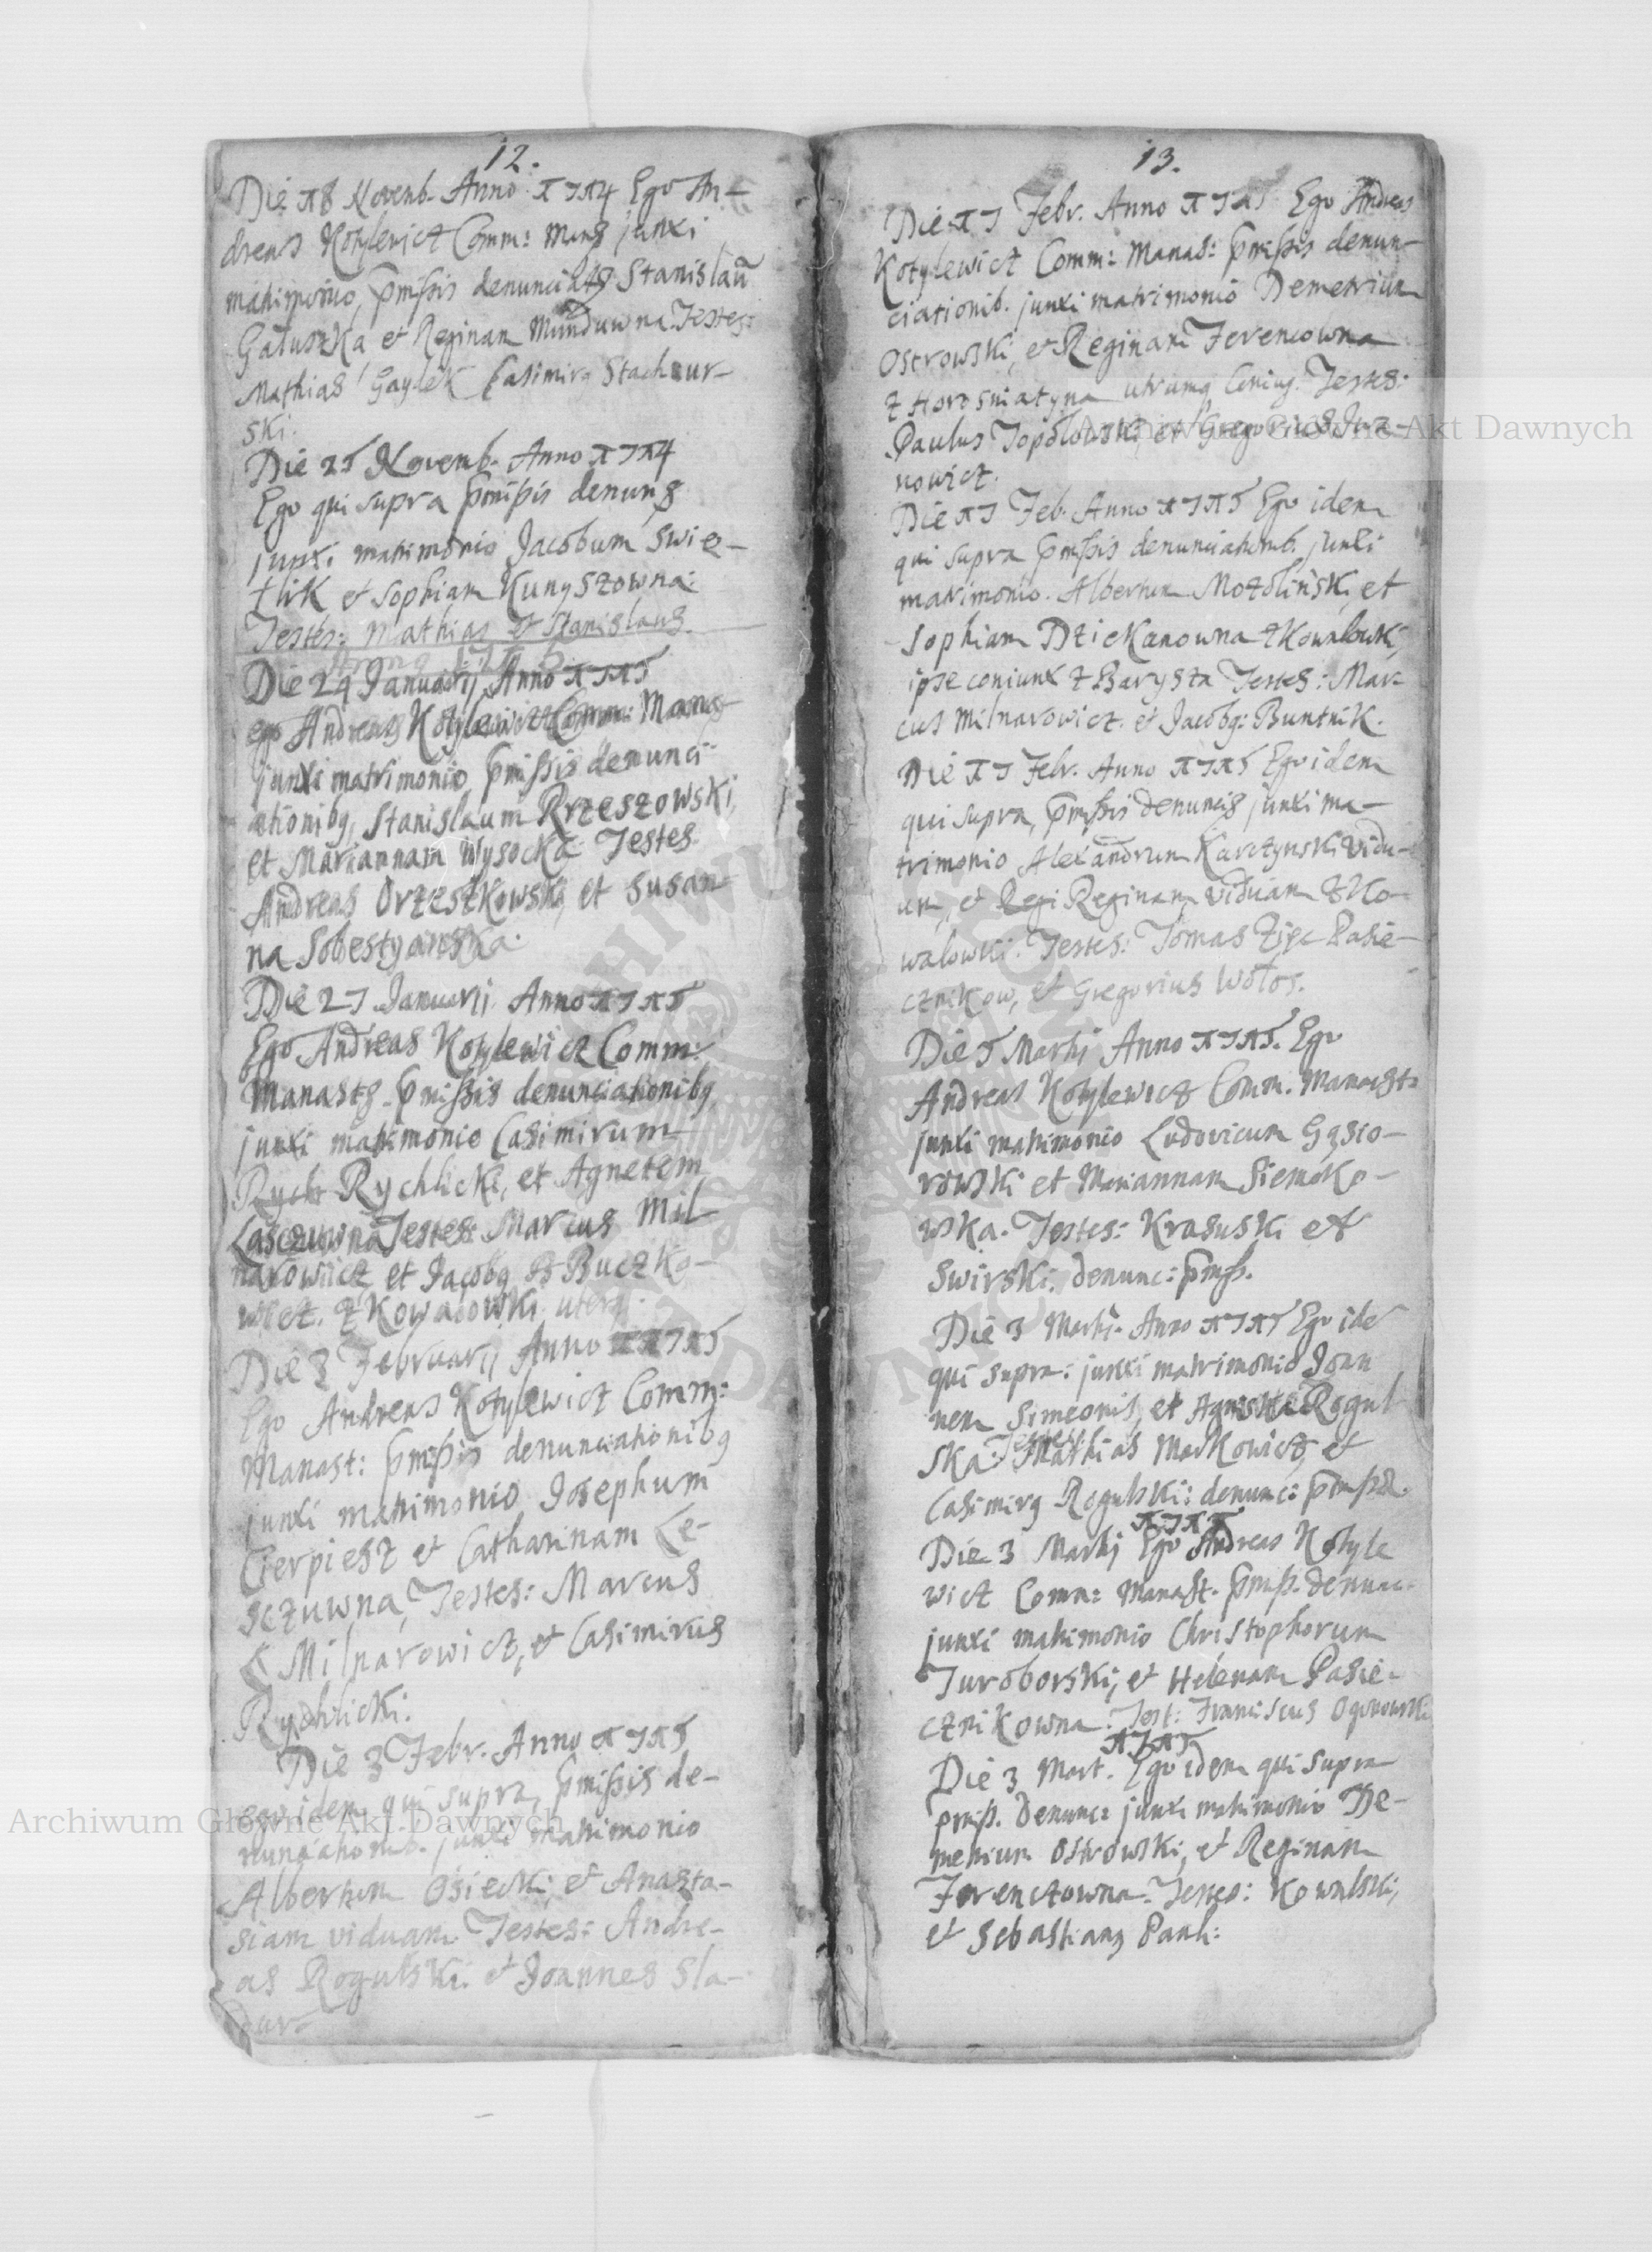 12.
Die 18 Novemb. Anno 1714 Ego An-
dreas Kotylewicz Comm: Manas junxi
matrimonio, pmissis denunciatis Stanislaū
Gałuszka et Reginam Munduwna. Testes:
Mathias Gaylek Casimirs Stachur-
ski.
Die 25 Novemb. Anno 1714
Ego qui supra pmissis denuns
junxi matrimonio Jacobum Swie-
tlik et Sophiam Kunyszowna.
Testes: Mathias et Stanislaus
Die 24 Januarij Anno 1715
ego Andreas Kotylewicz Comm: Manas
junxi matrimonio pmissis denunci-
ationibq, Stanislaum Rzeszowski,
et Mariannam Wysocka. Testes
Andreas Orzeszkowski, et Susan-
na Sobestyanska.
Die 27 Januarij Anno 1715
Ego Andreas Kotylewicz Comm:
Manasts. pmissis denunciationibq
junxi matrimonio Casimirum
Rych Rychlicki, et Agnetem
Lasczuwna Testes: Marcus Mil-
narowicz et Jacobq B Buczko-
wicz. z Kowalowki
Die 3 Februarij Anno 1715
Ego Andreas Kotylewicz Comm:
Manast: pmissis denunciationibq
junxi matrimonio Josephum
Cierpiesz et Catharinam Le-
sczuwna, Testes: Marcus
Milnarowicz, et Casimirus
Rychlicki.
Die 3 Febr. Anno 1715
ego idem qui supra, pmissis de-
nunciationib. junxi matrimonio
Albertum Osiecki, et Anasta-
siam viduam. Testes: Andre-
as Rogulski et Joannes Sla-
13.
Die 17 Febr. Anno 1715 Ego Andreas
Kotylewicz Comm: Manas: pmissis denun-
ciationib. junxi matrimonio Demetrium
Ostrowski, et Reginam Ferencowna
z Horosniatyna utrumq Coniug. Testes:
Paulus Topolowski, et Gregorius
nowicz.
Die 17 Feb. Anno 1715 Ego idem
qui supra pmissis denunciationib. junxi
matrimonio. Albertum Mozdlinski, et
Sophiam Dziekanowna z Kowalowki,
ipse coniunx z Barysza Testes: Mar-
cus Milnarowicz. et Jacobq: Buntnik.
Die 17 Febr. Anno 1715 Ego idem
qui supra, pmissis denuncis junxi ma-
trimonio Alexandrum Karczynski vidu-
um, et Regi Reginam viduam z Ko-
walowki. Testes: Tomas Zięc Pasie-
cznikow, et Gregorius Wołos.
Die 5 Martij Anno 1715. Ego
Andreas Kotylewicz Comm. Manast:
junxi matrimonio Ludovicum Gąsio-
rowski et Mariannam Siemako-
wska. Testes: Krasuski et
Swirski. denunc: pmss.
Die 3 Martij. Anno 1715 Ego ide
qui supra: junxi matrimonio Joan
nem Simeonis, et Rogul
ska. Testes: Mathias Markowicz, et
Casimirq Rogulski: denunc: pmss.
1715
Die 3 Martij Ego Andreas Kotyle
wicz Comm: Manast. pmss. denunc.
junxi matrimonio Christophorum
Turoborski, et Helenam Pasie-
cznikowna. Test: Franciscus Ogonowski
1715
Die 3 Mart. Ego idem qui supra
pmiss. denunc: junxi matrimonio De-
metrium Ostrowski, et Reginam
Ferenczowna. Testes: Kowalski,
et Sebastianq Pauli:
Archiwum Główne Akt Dawnych
Archiwum Główne Akt Dawnych